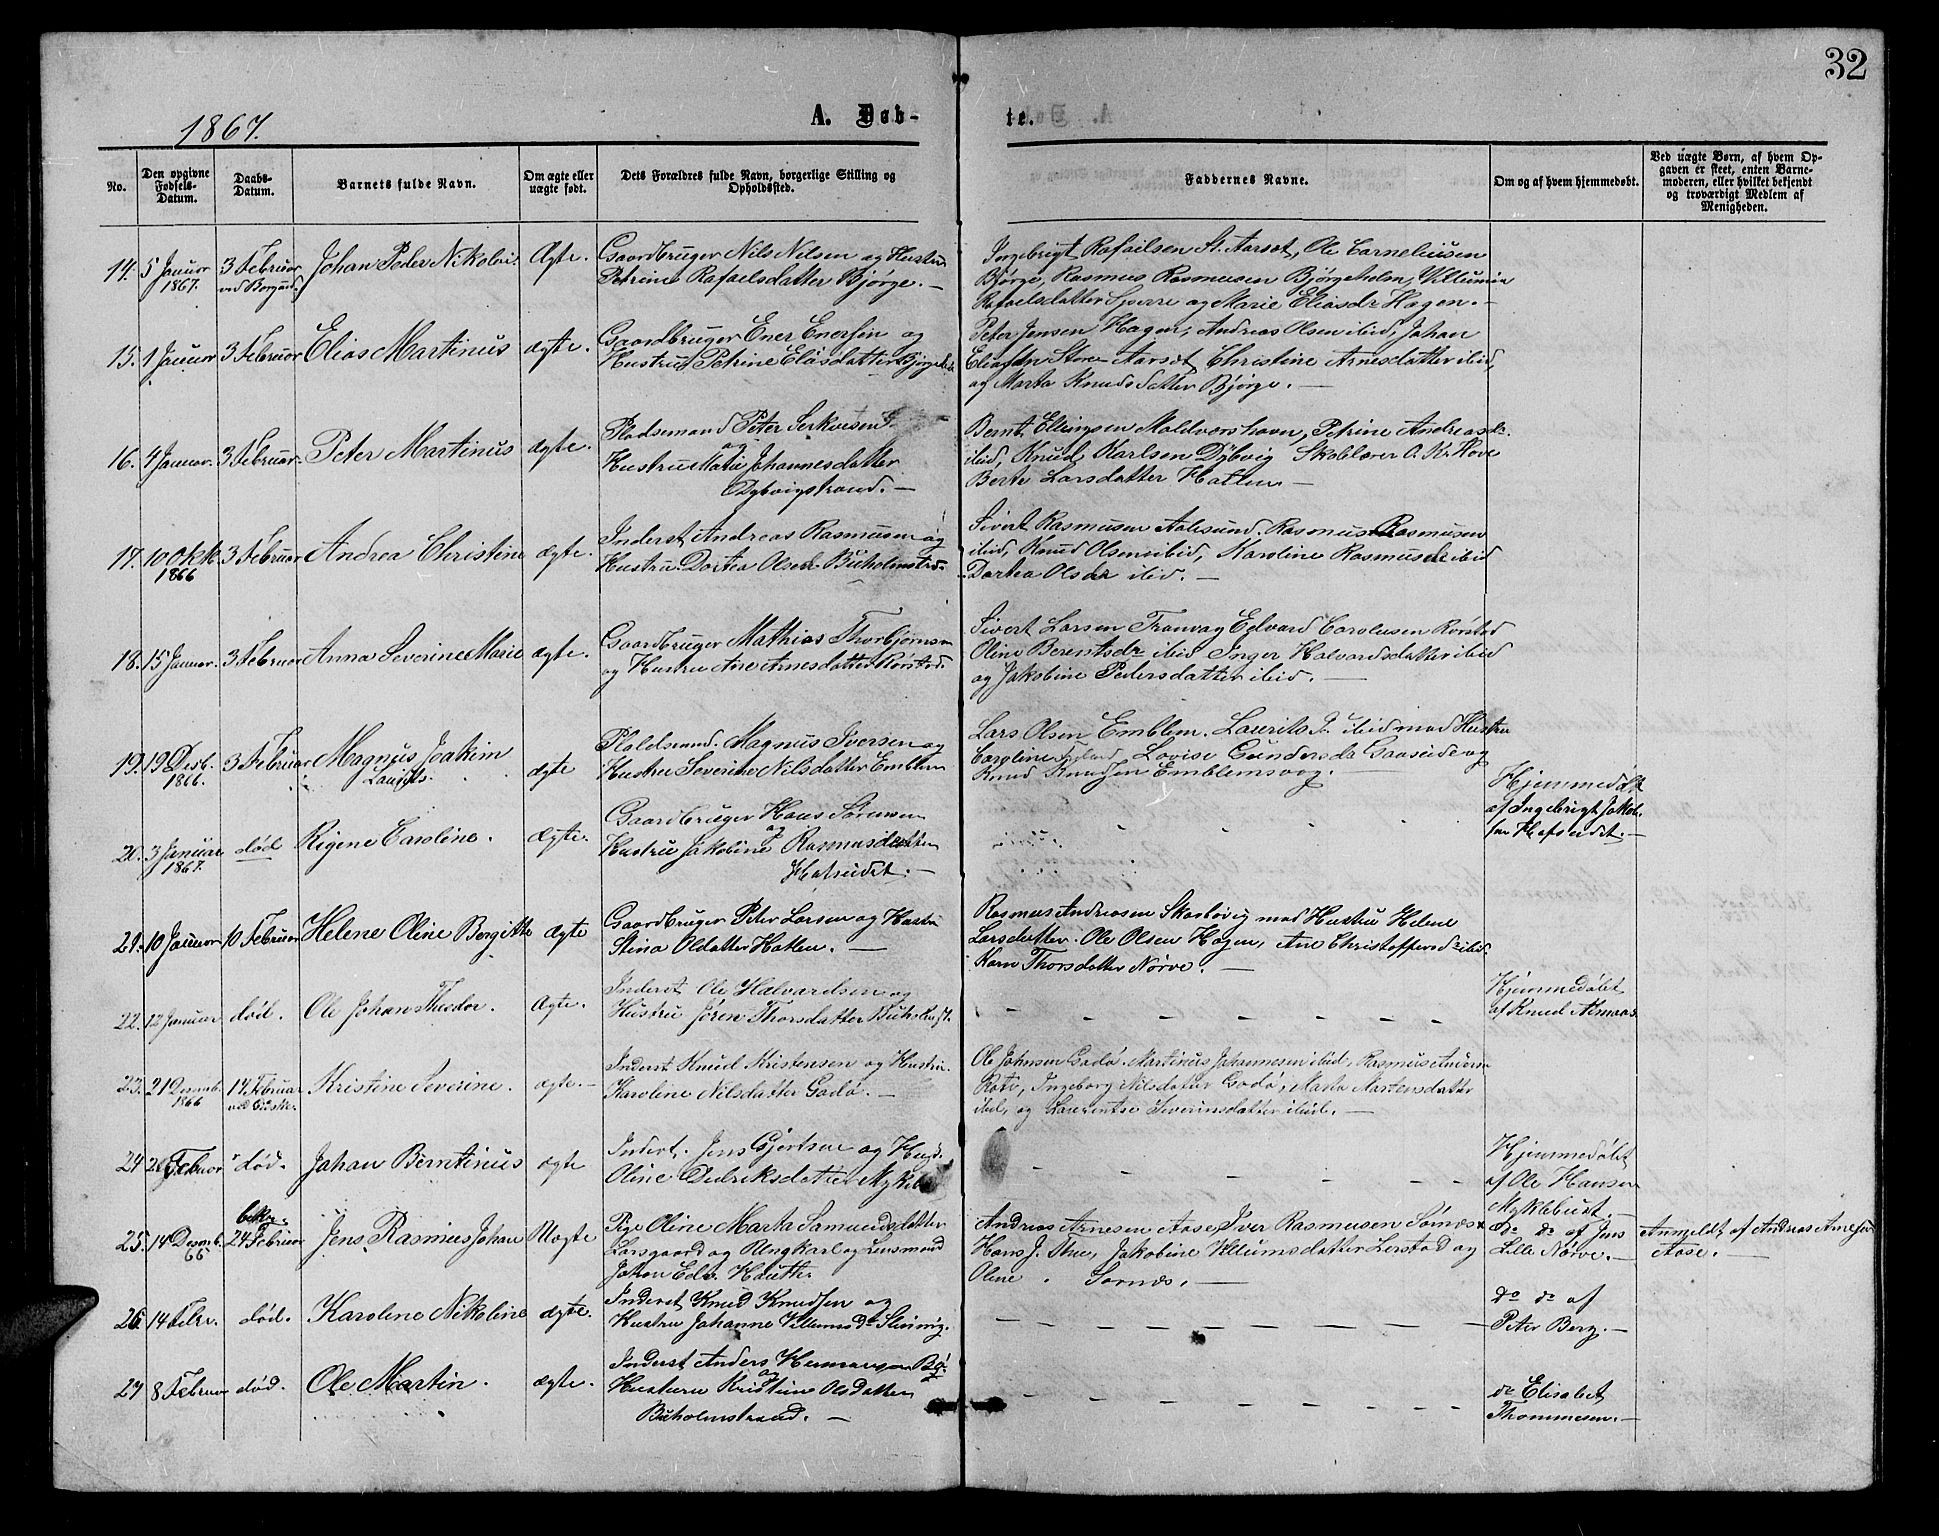 32
1867.
A. Døb-
te.
No.
Den opgivne Fødsels-Datum.
Daabs-Datum.
Barnets fulde Navn.
Om ægte eller uægte født.
Dets Forældres fulde Navn, borgerlige Stilling og Opholdssted.
Faddernes Navne.
Om og af hvem hjemmedøbt.
Ved uægte Børn, af hvem Opgaven er skeet, enten Barnemoderen, eller hvilket bekjendt og troværdigt Medlem af Menigheden.
14. 5 Januar 1867. 3 Februar ved Borgund. Johan Peder Nikolai. Ægte.
Gaardbruger Nils Nilsen og Hustru
Petrine Rafaelsdatter Bjørge. —
Ingebrigt Rafaelsen St. Aarsæt, Ole Corneliusen
Bjørge, Rasmus Rasmusen Bjørgeholm, Villumine
Rafaelsdatter Sperre og Marie Eliasdr Hagen. —
15. 1 Januar 3 Februar Elias Martinus ægte.
Gaardbruger Ener Enersen og
Hustru Petrine Eliasdatter
Peter Jensen Hagen, Andreas Olsen ibid, Johan
Store Aarsæt Christine Arnesdatter ibid,
og Marta Knudsdatter Bjørge. —
16. 4 Januar. 3 Februar. Peter Martinus ægte.
Pladsemand Peter
og
Hustru Johannesdatter
Dybvigstrand. —
Bernt Ellingsen Moldværshavn, Petrine Andreasdr.
ibid, Knud Karlsen Dybvig Skolelærer O. Kr. Hove
Berte Larsdatter Hatlen. —
17. 10 Oktb. 1866 3 Februar Andrea Christine ægte.
Inderst Andreas Rasmusen og
Hustru Dortea Olsdr Buholmstrd.
Sivert Rasmusen Aalesund. Rasmus Rasmusen
ibid, Knud Olsen ibid, Karoline Rasmusdr ibid
Dortea Olsdr ibid. —
18. 15 Januar. 3 Februar Anna Severine Marie ægte.
Gaardbruger Mathias Thorbjørnsen
og Hustru Ane Arnesdatter Rørstad.
Sivert Larsen Tranvag Edvard Carolusen Rørstad
Oline Berentsdr ibid Inger Halvardsdatter ibid
og Jakobine Pedersdatter ibid. —
19. 19 Desb. 1866. 3 Februar Magnus Joakim
Laurits. ægte
Pladsmand. Magnus Iversen og
Hustru Severine Nilsdatter Emblem
Lars Olsen Emblem. Laurits ibid med Hustru
Caroline Lovise Gundersdr Gaaseide og
Knud Knudsen Emblemsvog. —
20. 3 Januar 1867. død Rigene Caroline. ægte.
Gaardbruger Hans Sørensen
og
Hustru Jakobine Rasmusdatter
Hatseidet. —
Hjemmedøbt
af Ingebrigt Jakob-
sen Hafseidet. —
21. 10 Januar 10 Februar Helene Oline Bergitte ægte
Gaardbruger Peter Larsen og Hustru
Stina Oldatter Hatlen. —
Rasmus Andreasen Skarbøvig med Hustru Helene
Larsdatter. Ole Olsen Hagen, Ane Christoffersdr ibid.
Karn Thorsdatter Nørve. —
22. 12 Januar død. Ole Johan Theodor. Ægte.
Inderst Ole Halvardsen og
Hustru Jøren Thorsdatter
Hjemmedøbt
af Knud Almaas
23. 21 Desemb. 1866 17 Februar Kristine Severine. ægte. —
Inderst Knud Kristensen og Hustru
Karoline Nilsdatter Godø. —
Ole Johnsen Godø. Martinus Johannesen ibid, Rasmus
Ingeborg Nilsdatter Godø, Marta Martensdatter
ibid, og Laurentse Severinsdatter ibid. —
24 Februar død. Johan Berntinus ægte
Inderst. Jens Gjertsen og Hust.
Oline Didriksdatter
Hjemmedøbt
af Ole Hansen
Myklebust. —
25. 14 Desemb. 66 24 Februar Jens Rasmus Johan Uægte
Pige Oline Marta Samuelsdatter
Larsgaard og Ungkarl og Lensmand
Johan Edv.
Andreas Arnesen Aase, Iver Rasmusen Sørnes
Hans J. Thue, Jakobine Villumsdatter Lerstad og
Oline Sørnæs. —
do do af Jens
Lille Nørve. —
Anmeldt af Andreas Arnesen
Aase. —
26. 14 Febr. død. Karoline Nikoline ægte.
Inderst Knud Knudsen og
Hustru Johanne Villumsdr
do do af
Peter Berg. —
27 8 Februar død. Ole Martin. ægte.
Inderst Anders
og
Hustru Kristine Olsdatter
Buholmstrand. —
do Elisabet
Thommesen. —